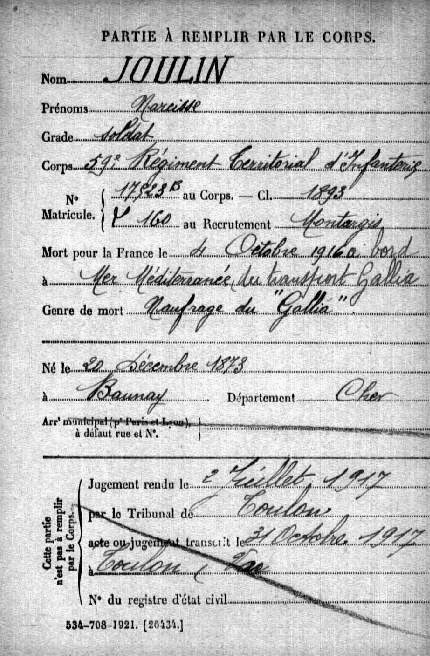 PARTIE À REMPLIR PAR LE CORPS.
Nom JOULIN
Prénoms Narcisse
Grade soldat
Corps 59e Régiment Territorial d'Infanterie
N° Matricule. 17923 bis au Corps. — Cl. 1893
160 au Recrutement Montargis
Mort pour la France le 4 Octobre 1916 à bord
à Mer Méditerranée, du transport Gallia
Genre de mort Naufrage du "Gallia".
Né le 20 Décembre 1873
à Bannay Département Cher
Arrt municipal (pr Paris et Lyon), à défaut rue et N°.
Cette partie n'est pas à remplir par le Corps.
Jugement rendu le 2 Juillet 1917
par le Tribunal de Toulon
acte ou jugement transcrit le 31 Octobre 1917
à Toulon, Var
N° du registre d'état civil
534-708-1921. [26434.]